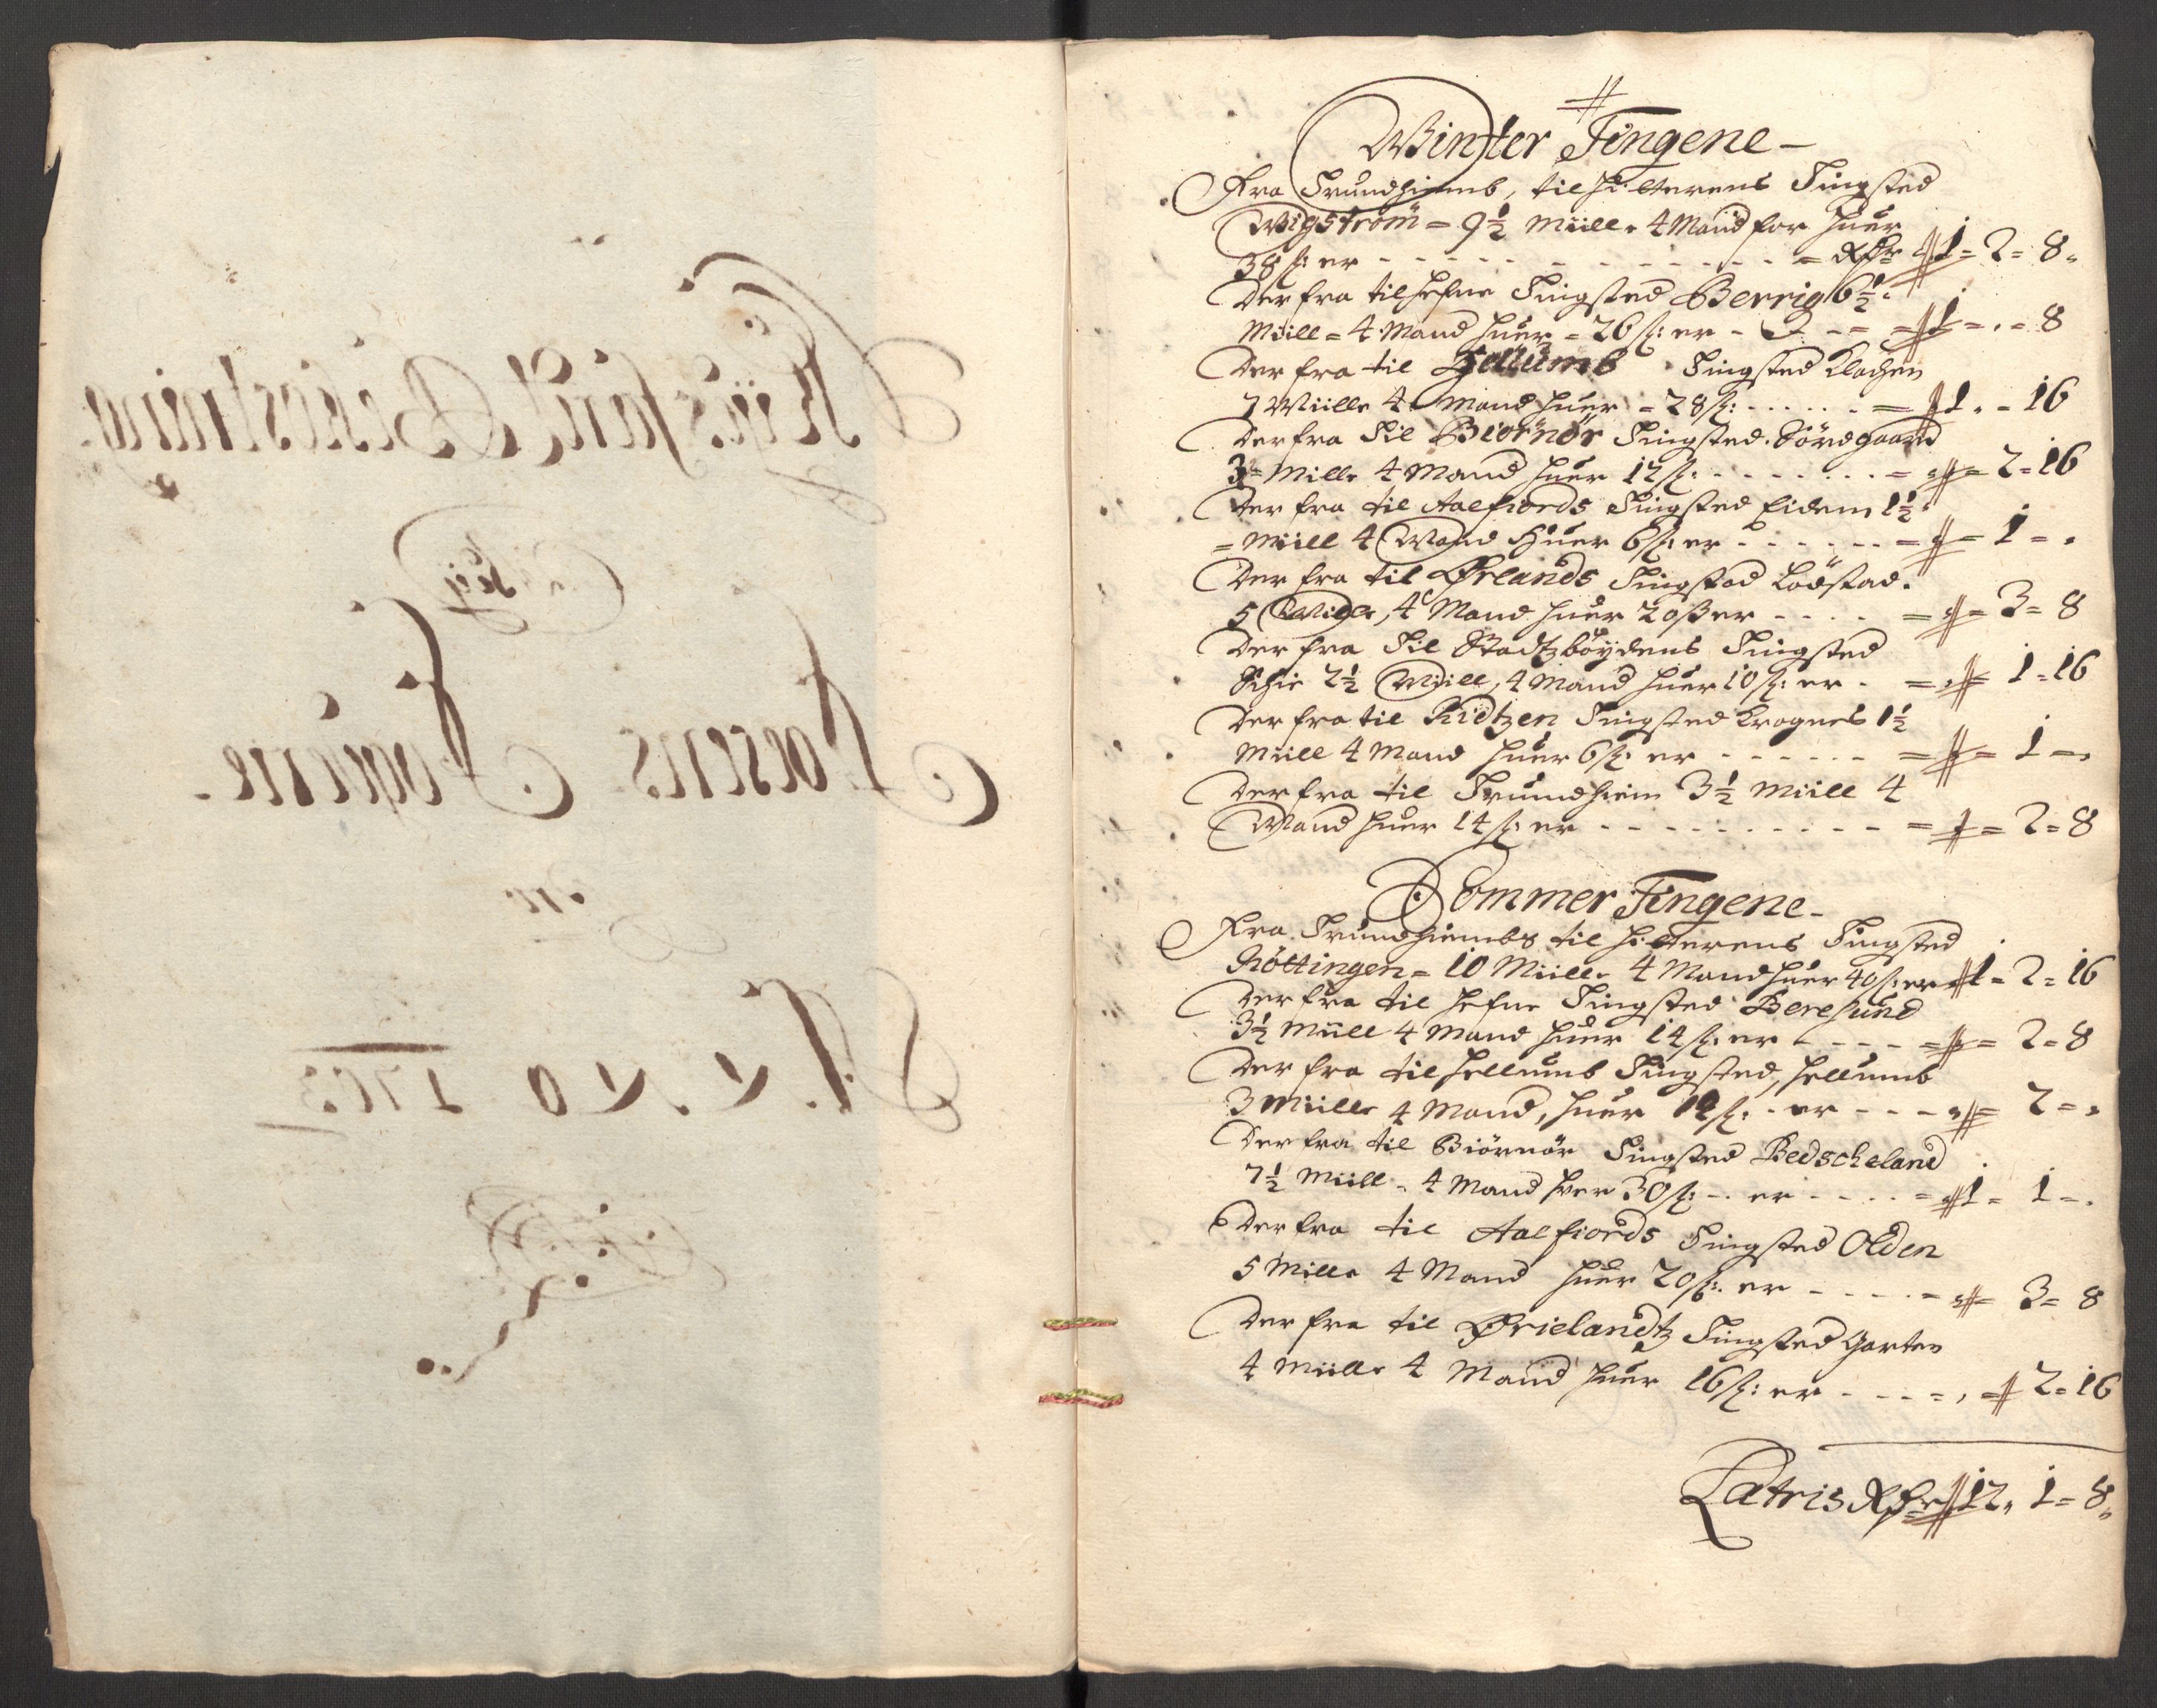 Winter Tingene
Fra Trundhiemb, til Hitterens Tingsted
Wigstrøm = 9½ Miill. 4 Mand for huer
38 s: er - - - Rdr 1 = 2 = 8
Der fra til Hefne Tingsted Berrig 6½
Miill = 4 Mand huer = 26 s: er - - - 1 = . = 8
Der fra til Hellumb Tingsted Klachen
7 Miille 4 Mand huer = 28 s: - - - 1 . - 16
Der fra Til Biørnør Tingsted. Sørdgaard
3 = Mille 4 Mand huer 12 s: - - - 2 = 16
Der fra til Aalfiords Tingsted Eidem 1½
= Miill 4 Mand Huer 6 s: er - - - 1 = .
Der fra til Ørlands Tingsted Lødstad.
5 Mille, 4 Mand huer 20 s er - - - 3 = 8
Der fra Til Stadtzbøydens Tingsted
Schie 2½ Miill, 4 Mand huer 10 s: er - 1 = 16
Der fra til Ridtzen Tingsted Krognes 1½
Miill 4 Mand huer 6 s: er - - - 1 = .
Der fra til Trundhiem 3½ Miill 4
Mand huer 14 s: er - - - 2 = 8
Sommer Tingene
Fra Trundhiembs til Hitterens Tingsted
Røttingen = 10 Miill. 4 Mand huer 40 s: er 1 = 2 = 16
Der fra til Hefne Tingsted Beresund
3½ Miill 4 Mand huer 14 s: er - - - 2 = 8
Der fra til Hellumb Tingsted, Hellumb
3 Miille 4 Mand, huer 12 s: - er - - - 2 = .
Der fra til Biørnør Tingsted Bedscheland
7½ Miill. 4 Mand huer 30 s: - er - - - 1 = 1 = .
Der fra til Aalfiords Tingsted Olden
5 Mille 4 Mand huer 20 s: er - - - 3 = 8
Der fra til Ørielandtz Tingsted Garten
4 Miille 4 Mand huer 16 s: er - - - 2 = 16
Latris Rdr 12, 1 = 8